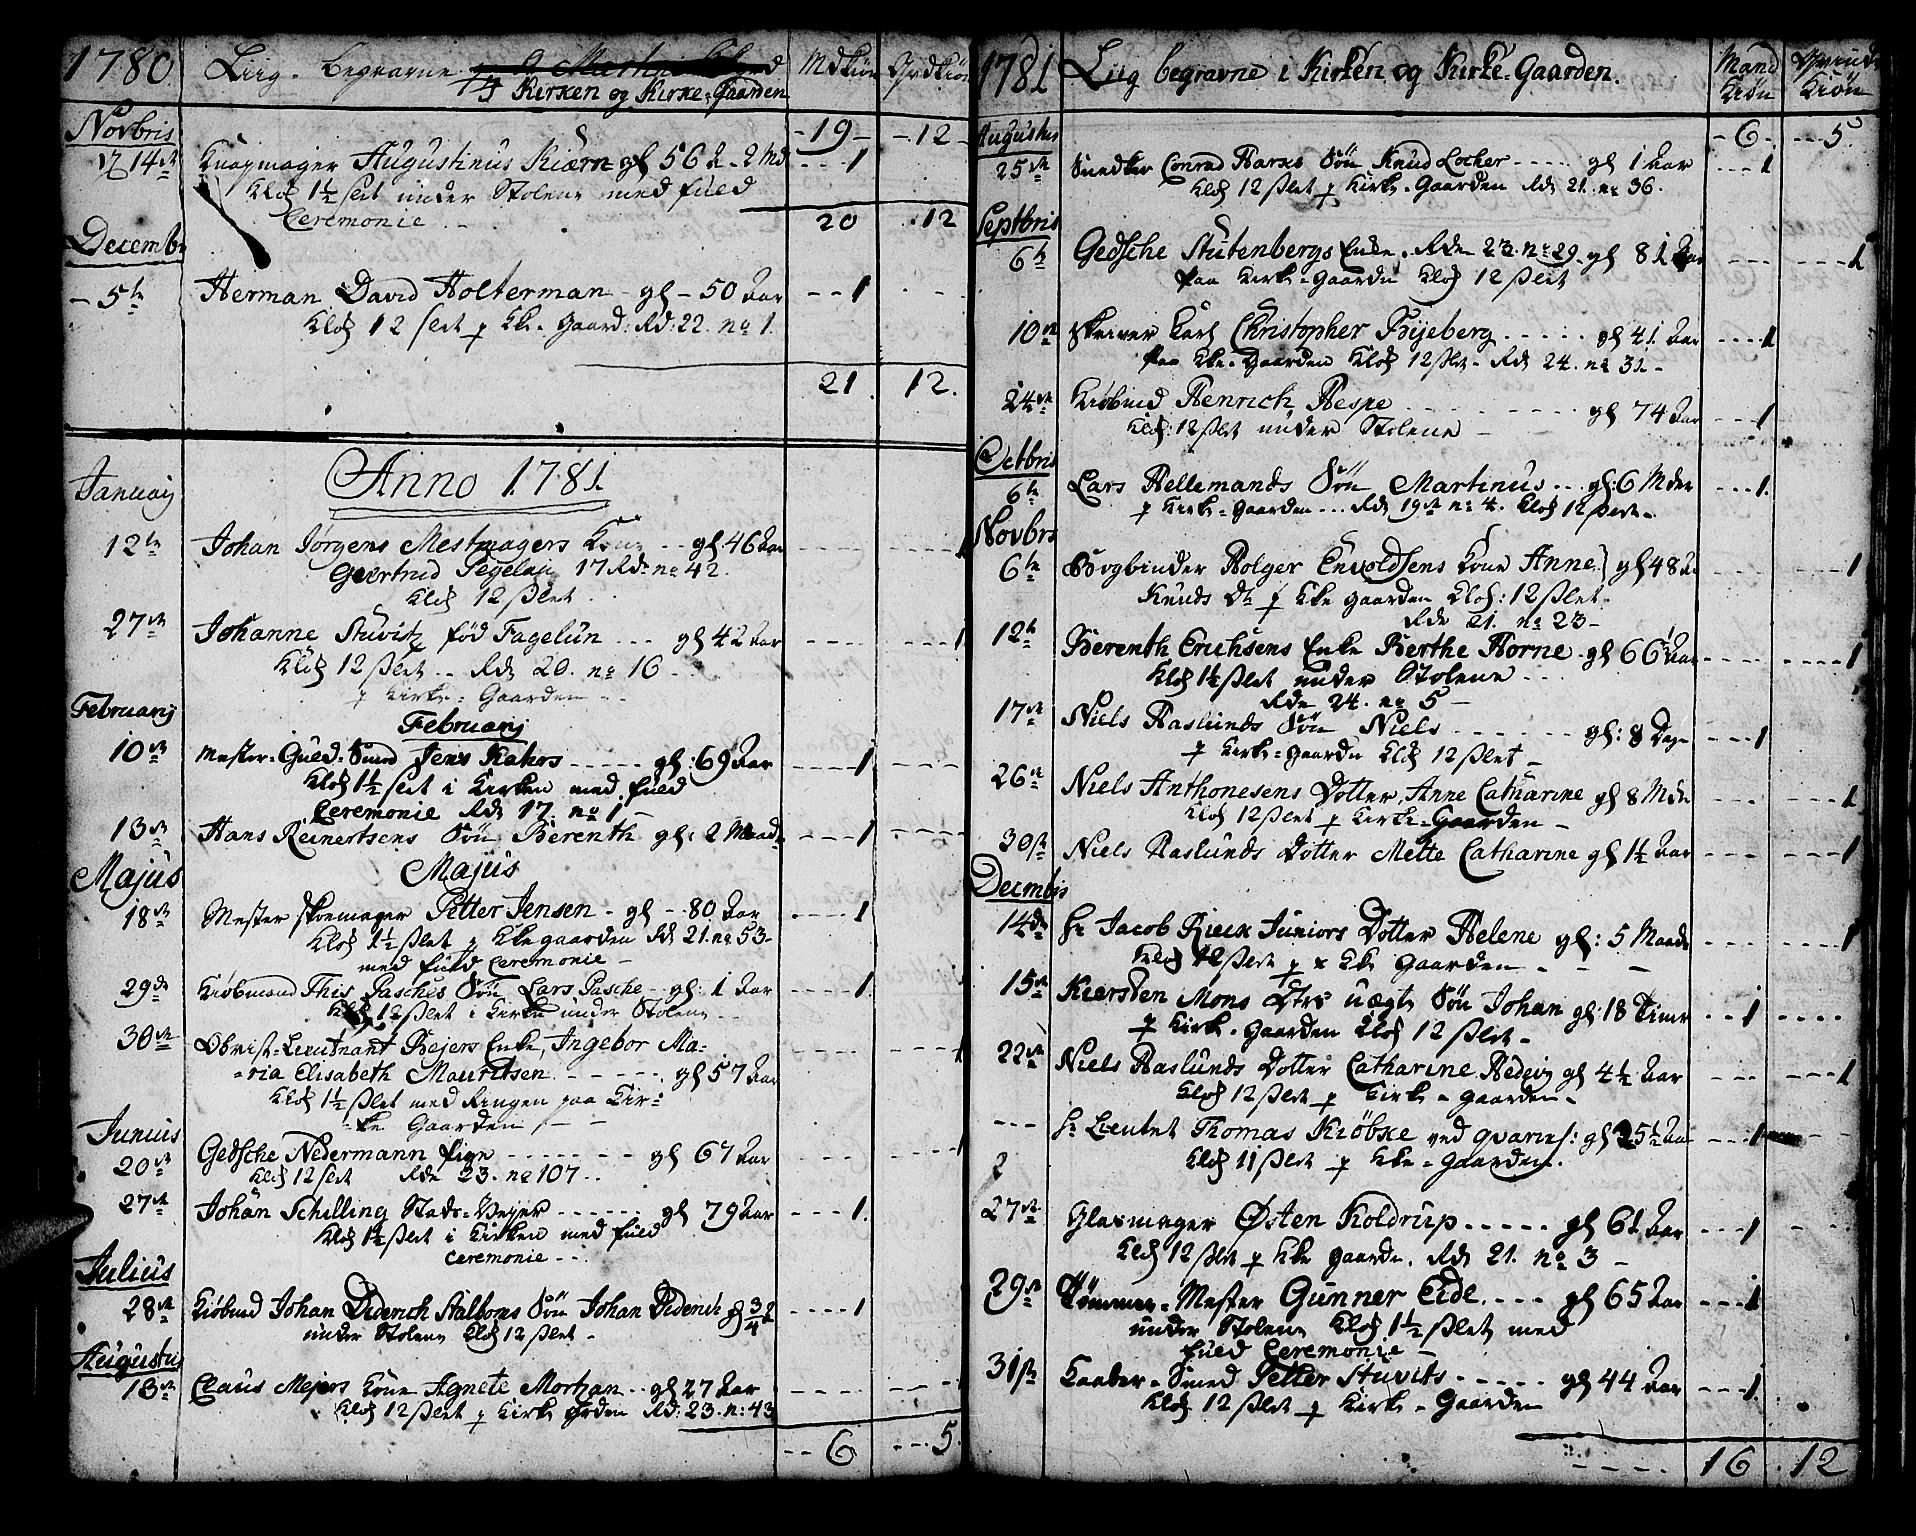 1780. Liig begravne Mdkiön Qvdkiön
i Kirken og Kirke-Gaarden
Novbris - 19 - - - 12 -
14de Knapmager Augustinus Kiærn gl 56 2 Md - - - 1
Klok 1½ slet under Stolene med fuld
Ceremonie - - 20 . 12
Decembr
- 5te Herman David Holterman - gl - 50 Aar - - - 1
Klok 12 slet p Kke-Gaard: Rd: 22. no 1.
21. 12.
Anno 1781.
Januarij
12te Johan Jørgens Mestmagers Kone - - gl. 46 Aar - - - - 1
Geertrud Segelau 17 Rd: no 42.
Klok 12 slet
27de Johanne Stuvitz föd Fagelun - - - gl 42 Aar - - - - 1
Klok 12 slet - - Rde 20. no 16 - -
p Kirke-Gaarden - -
Februarij
Februarij
10de Mester-Guld-Smed Jens Kahrs - - - - - gl: 69 Aar - - - - 1
Klok 1½ slet i Kirken med fuld
Ceremonie Rde 17. no 1 -
13de Hans Reinertsens Sön Berenth gl: 2 Maad - - - 1
Majus
Majus
18de Mester Skomager Petter Jensen - gl - 80 Aar - - - - 1
Klok 1½ slet p Kkegaarden Rde 21. no 53 -
med fuld Ceremonie -
29de Kiöbmand This Pasches Sön Lars Pasche - gl: 1 Aar - - - - 1
Klok 12 slet i Kirken under Stolene - -
30de Obrist-Lieutnant Bejers Enke, Ingebor Ma-
-ria Elisabeth Mauritsen - - - - - gl 57 Aar
Klok 1½ slet med Ringen paa Kir-
-ke Gaarden - -
Junius
20de Gedsche Nedermann Pige - - - - - gl 67 Aar - - - - 1
Klok 12 slet Rde 23. no 107 - -
27de Johan Schilling Stads-Vejer - - - - - - gl 79 Aar - - - 1.
Klok 1½ slet i Kirken med fuld
Ceremonie - -
Julius
28de Kiöbmd Johan Diderich Aalborns Sön Johan Diderich gl ¾ - - - - 1
under Stolene Klok 12 slet -
Augustus
13de Claus Mejers Kone Agnete Mortzan - - gl 27 Aar - - - - 1
Klok 12 slet p Kirke grden Rd: 23. n: 43
- - 6 - - - 5.
1781 Liig begravne i Kirken og Kirke-Gaarden. Mand Kiön Qvinde Kiön
Augustus - 6 - - - 5.
25de Snedker Conrad Harxs Sön Knud Locher - - - - - gl 1 Aar - - - 1
Klok 12 slet p Kirke-Gaarden Rde 21. no 36.
Septbris
6te Gedsche Stutenbergs Enke. Rde 23. no 29. gl 81 Aar - - - - 1
paa Kirke-Gaarden Klok 12 slet
10de Skriver Karl Christopher Fryeberg - - - - - gl 41 Aar - - - - 1
paa Kke-Gaarden Klok 12 slet - Rde 24. no 31 -
24de Kiöbmd Henrich Hespe - - - - - - - - gl 74 Aar - - - 1
Klok: 12 slet under Stolene -
Octbris
6te Lars Hellemands Sön Martinus - - - gl: 6 Mdr - - - 1.
p Kirke-Gaarden - - - Rde 19de no 4. Klok 12 slet -
Novbrs
6te Bogbinder Holger Envoldsens Kone Anne gl 48 A - - - - 1
Knuds Dr p Kke gaarden Klok: 12 slet -
Rde 21. no 23 -
12te Berenth Erichsens Enke Berthe Horne - gl 66½ Aar - - - - 1
Klok 1½ slet under Stolene - - -
Rde 24. no 5 -
17de Niels Haslunds Sön Niels - - - - - - gl: 8 Dage - - - 1
p Kirke-Gaarden Klok 12 slet -
26de Niels Anthonesens Dotter, Anne Catharine gl 8 Mdr - - - - 1
Klok 12 slet p Kirke-Gaarden -
30te Niels Haslunds Dotter Mette Catharine gl 1½ Aar - - - - 1
Decmbis
14de Hr Jacob Rieck Juniors Dotter Helene gl: 5 Maade - - - - 1
Klok 12 slet p Kke Gaarden - - -
15de Kiersten Mons Dtrs uægte Sön Johan gl: 18 Timer - - - 1 - - - -
p Kirke-Gaarden Klok 12 slet -
22de Niels Haslunds Dotter Catharine Hedevig gl 4½ Aar - - - - 1
Klok 12 slet p Kirke-Gaarden -
- - - Hr Lieutnt Thomas Kröbke ved Qvarnis: gl 25½ Aar - - - 1
Klok 11 slet p Kke-Gaarden.
27de Glasmager Østen Koldrup - - - - - gl 61 Aar - - - 1
Klok 12 slet p Kke gaarde. Rde 21. no 3 -
29de Tömmer-Mester Gunner Eide. - - - gl 65 Aar - - - 1
under Stolene Klok 1½ slet med
fuld Ceremonie -
31te Kaaber-Smed Petter Stuvits - - - - - gl 44 Aar - - - 1
Klok 12 slet p Kirke-Gaarden
16 . 12